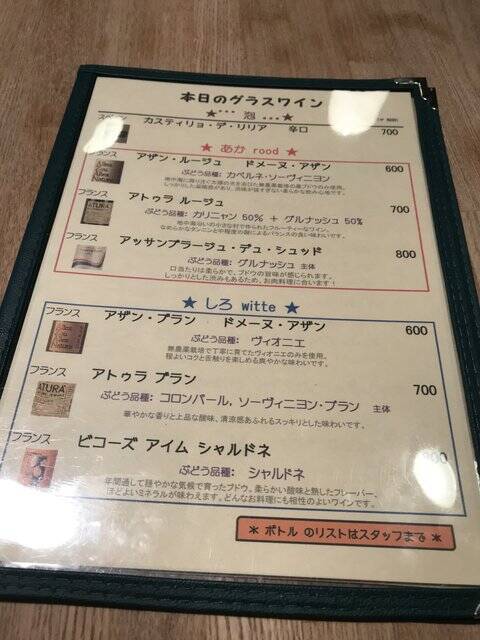 本日のグラスワイン
★*** 泡 ...★
スペイン カスティリョ・デ・リリア 辛口 700
★ あか rood ★
アザン・ルージュ ドメーヌ・アザン 600
ぶどう品種: カベルネ・ソーヴィニヨン
フランス アトゥラ ルージュ 700
ぶどう品種: カリニャン 50% + グルナッシュ 50%
地中海沿いの小さな村で作られたフルーティーなワイン。
なめらかなタンニンと中程度の酸によるバランスの良い味わいです。
フランス アッサンブラージュ・デュ・シュッド 800
ぶどう品種: グルナッシュ 主体
口当たりは柔らかで、ブドウの旨味が感じられます。
しっかりとした渋みもあるため、お肉料理に合います!
★ しろ witte ★
フランス アザン・ブラン ドメーヌ・アザン 600
ぶどう品種: ヴィオニエ
無農薬栽培で丁寧に育てたヴィオニエのみを使用。
程よいコクと舌触りを楽しめる爽やかな味わい。
フランス アトゥラ ブラン 700
ぶどう品種: コロンバール, ソーヴィニヨン・ブラン 主体
華やかな香りと上品な酸味、清涼感あふれるスッキリとした味わいです。
フランス ビコーズ アイム シャルドネ
ぶどう品種: シャルドネ
年間通して穏やかな気候で育ったブドウ。柔らかい酸味と熟したフレーバー、
ほどよいミネラルが味わえます。どんなお料理にも相性のよいワインです。
* ボトル のリストはスタッフまで *